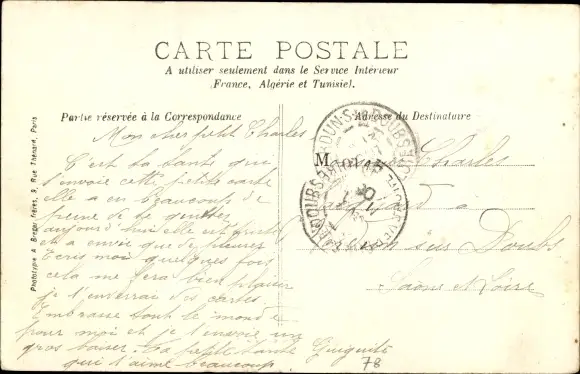 CARTE POSTALE
A utiliser seulement dans le Service Intérieur
(France, Algérie et Tunisie).
Partie réservée à la Correspondance
Adresse du Destinataire
Mon cher petit Charles
C'est ta tante qui
t'envoie cette petite carte
elle a eu beaucoup de
peine de te quitter
aujourd'hui elle est
et a envie que de pleurer
Ecris moi quelques fois
cela me fera bien plaisir
je t'enverrai des cartes
Embrasse tout le monde
pour moi et je t'envoie un
gros baiser. Ta petite tante
qui t'aime beaucoup
M
Charles
à
sur Doubs
Saône et Loire
78
Phototypie A. Breger Frères, 9, Rue Thénard, Paris